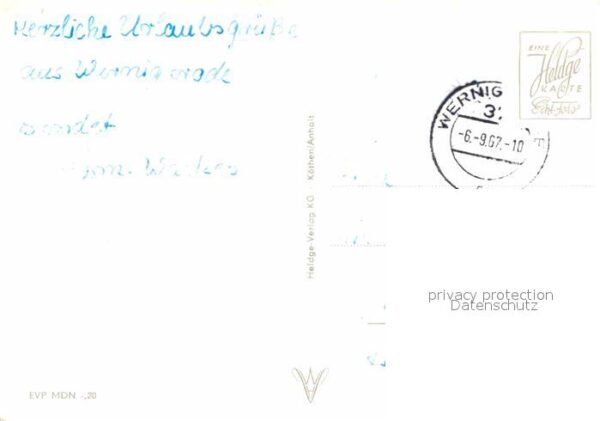 Herzliche Urlaubsgrüße
aus Wernigerode
sendet
Fam.
EINE
Heldge
KARTE
Echt-Foto
WERNIG
-6.-9.67.-10
Heldge-Verlag KG · Köthen/Anhalt
privacy protection
Datenschutz
EVP MDN -,20